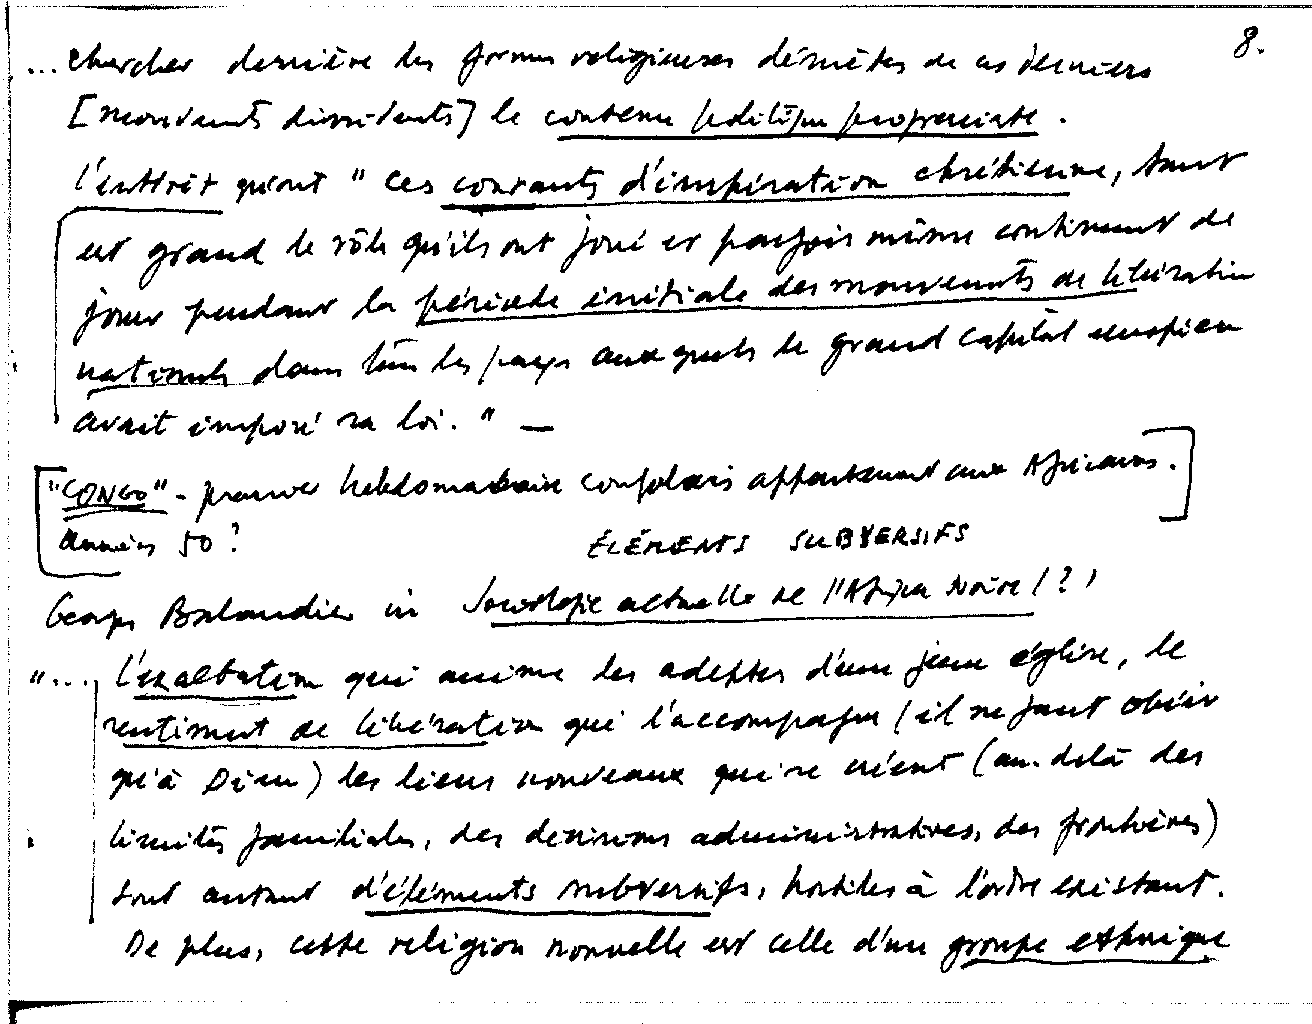 8.
... chercher derrière les formes religieuses désuètes de ces derniers
[mouvements dissidents] le contenu politique progressiste.
L'intérêt qu'ont " ces courants d'inspiration chrétienne, tant
est grand le rôle qu'ils ont joué et parfois même continuent de
jouer pendant la période initiale des mouvements de libération
nationale dans tous les pays auxquels le grand capital européen
avait imposé sa loi. " —
["CONGO" - premier hebdomadaire congolais appartenant aux Africains.]
années 50 ?
ÉLÉMENTS SUBVERSIFS
Georges Balandier in Sociologie actuelle de l'Afrique Noire (?)
"... l'exaltation qui anime les adeptes d'une jeune église, le
sentiment de libération qui l'accompagne (il ne faut obéir
qu'à Dieu) les liens nouveaux qui se créent (au-delà des
limites familiales, des divisions administratives, des frontières)
sont autant d'éléments subversifs, hostiles à l'ordre existant.
De plus, cette religion nouvelle est celle d'un groupe ethnique